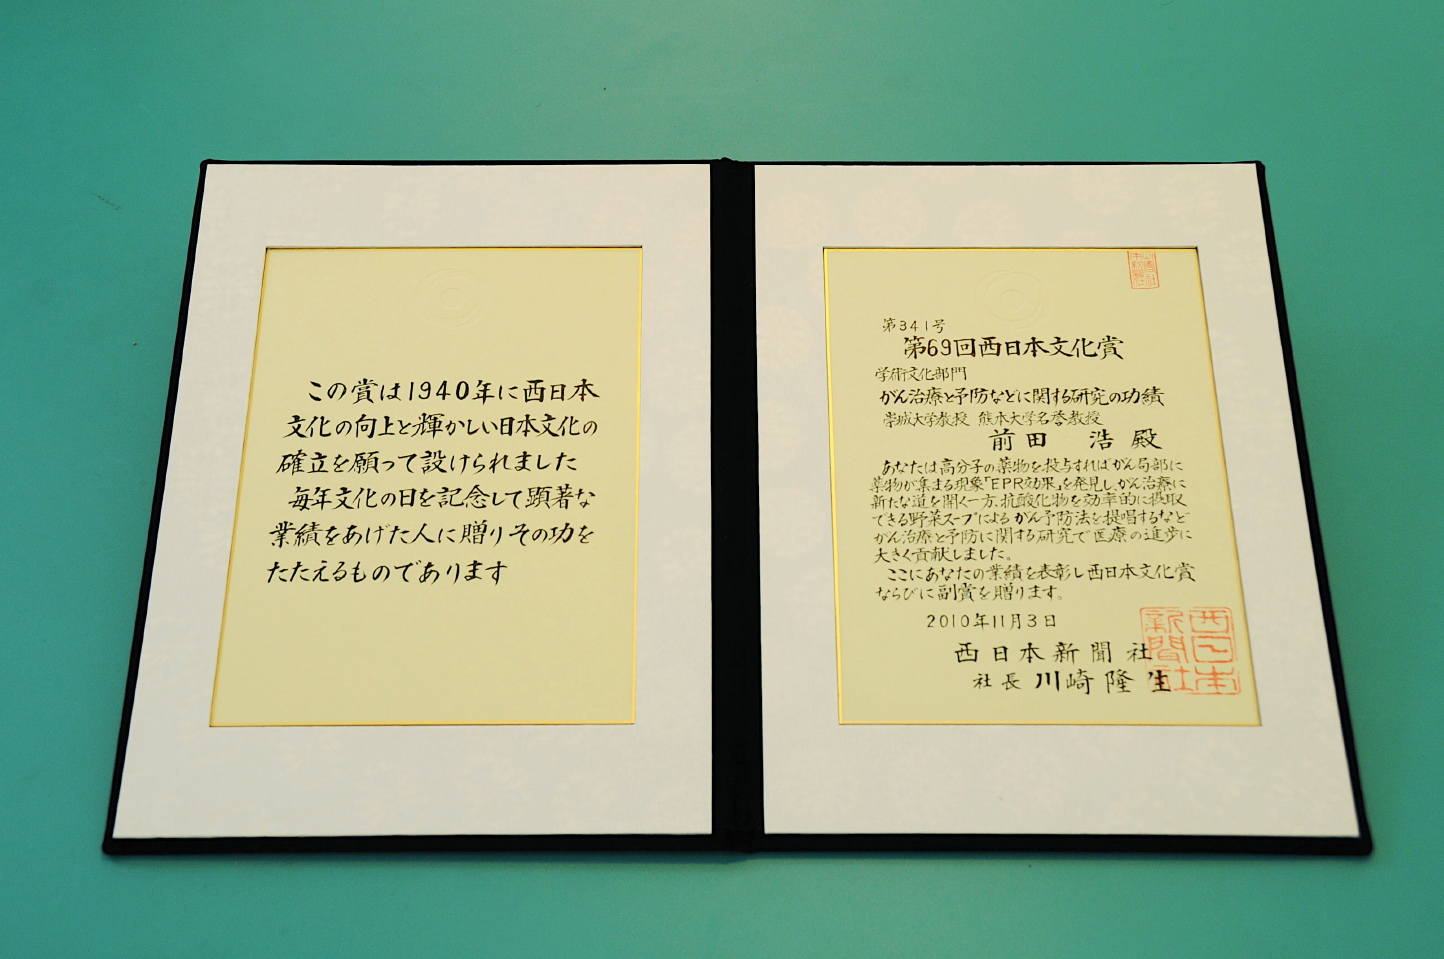 この賞は1940年に西日本
文化の向上と輝かしい日本文化の
確立を願って設けられました
毎年文化の日を記念して顕著な
業績をあげた人に贈りその功を
たたえるものであります
第341号
第69回西日本文化賞
学術文化部門
がん治療と予防などに関する研究の功績
崇城大学教授 熊本大学名誉教授
前田 浩 殿
あなたは高分子の薬物を投与すればがん局部に
薬物が集まる現象「EPR効果」を発見し、がん治療に
新たな道を開く一方、抗酸化物を効率的に摂取
できる野菜スープによるがん予防法を提唱するなど
がん治療と予防に関する研究で医療の進歩に
大きく貢献しました。
ここにあなたの業績を表彰し西日本文化賞
ならびに副賞を贈ります。
2010年11月3日
西日本新聞社
社長 川崎隆生
西日本新聞社